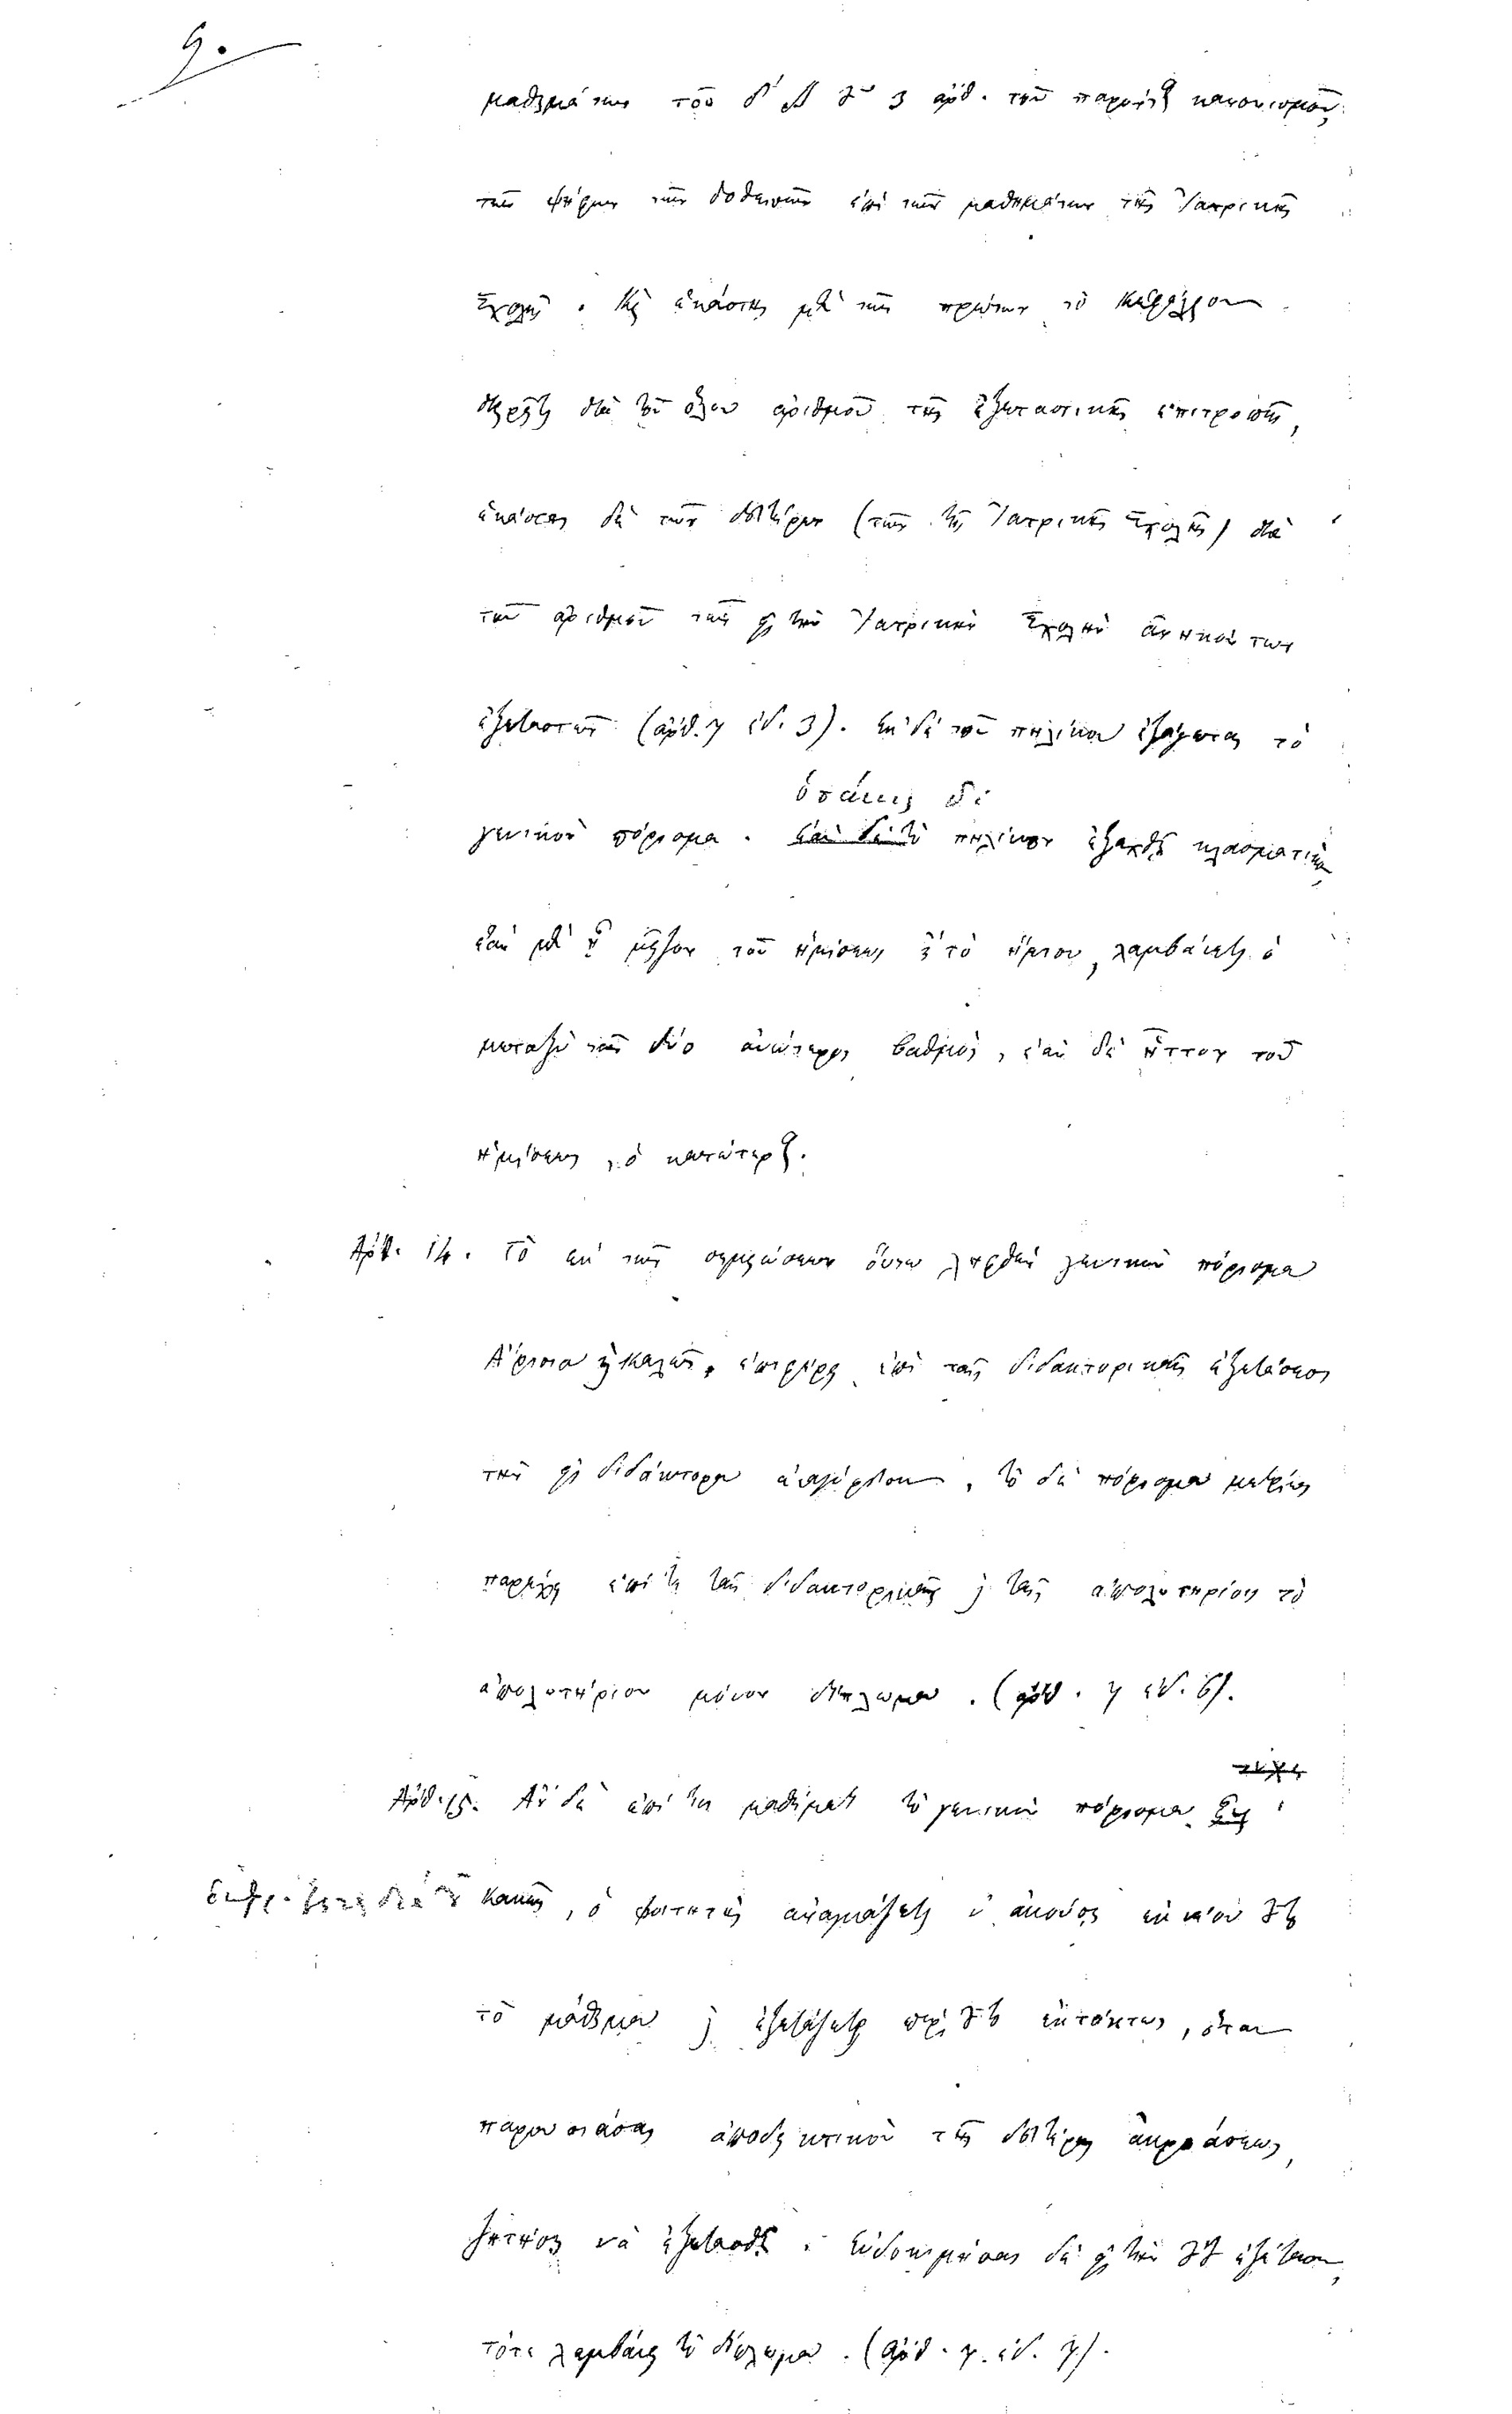 9.
μαθημάτων τοῦ δ΄ τοῦ 3 ἀρθ. τοῦ παρόντος κανονισμοῦ,
τῶν ψήφων τῶν δοθεισῶν ἐπὶ τῶν μαθημάτων τῆς Ἰατρικῆς
Σχολῆς. Καὶ ἑκάστης μὲν τῶν πρώτων τὸ κεφάλαιον
διαιρεῖται διὰ τοῦ ὅλου ἀριθμοῦ τῆς ἐξεταστικῆς ἐπιτροπῆς,
ἑκάστης δὲ τῶν δευτέρων (τῶν τῆς Ἰατρικῆς Σχολῆς) διὰ
τοῦ ἀριθμοῦ τῶν εἰς τὴν Ἰατρικὴν Σχολὴν ἀνηκόντων
ἐξεταστῶν (ἀρθ. 7 ἐδ. 3). Ἐκ δὲ τοῦ πηλίκου ἐξάγεται τὸ
ὁσάκις δὲ
γενικὸν πόρισμα. ἐὰν δὲ τὸ πηλίκον ἐξαχθῇ κλασματικὸν,
ἐὰν μὲν ᾖ μεῖζον τοῦ ἡμίσεως ἢ τὸ ἥμισυ, λαμβάνεται ὁ
μεταξὺ τῶν δύο ἀνώτερος βαθμὸς, ἐὰν δὲ ἧττον τοῦ
ἡμίσεως, ὁ κατώτερος.
Ἀρθ. 14. Τὸ ἐκ τῶν σημειώσεων οὕτω ληφθὲν γενικὸν πόρισμα
Ἄριστα ἢ καλῶς, ἐπιφέρει ἐπὶ ταῖς διδακτορικαῖς ἐξετάσεσι
τὴν εἰς διδάκτορα ἀναγόρευσιν, τὸ δὲ πόρισμα μετρίως
παρέχει ἐπί τε ταῖς διδακτορικαῖς καὶ ταῖς ἀπολυτηρίοις τὸ
ἀπολυτήριον μόνον δίπλωμα. (ἀρθ. 7 ἐδ. 6).
Ἀρθ. 15. Ἂν δὲ ἐπί τινι μαθήματι τὸ γενικὸν πόρισμα
διὰ τοῦ κακῶς, ὁ φοιτητὴς ἀναγκάζεται ν' ἀκούσῃ ἐκ νέου τοῦτο
τὸ μάθημα καὶ ἐξετάζεται περὶ τούτου ἐκτάκτως, ὅταν
παρουσιάσας ἀποδεικτικὸν τῆς δευτέρας ἀκροάσεως,
ζητήσῃ νὰ ἐξετασθῇ. Εὐδοκιμήσας δὲ εἰς τὴν ταύτην ἐξέτασιν,
τότε λαμβάνει τὸ δίπλωμα. (ἀρθ. 7. ἐδ. 7).